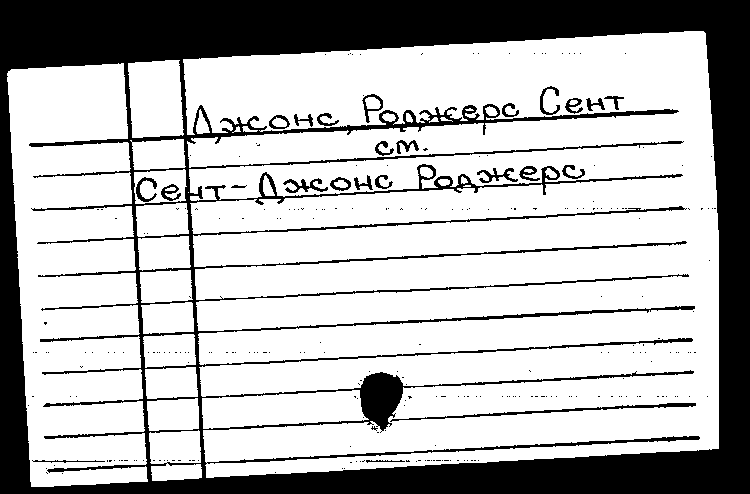 Джонс, Роджерс Сент
см.
Сент-Джонс Роджерс